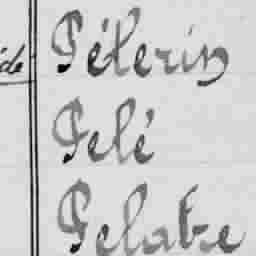 de
Pélerin
Pelé
Pelatre